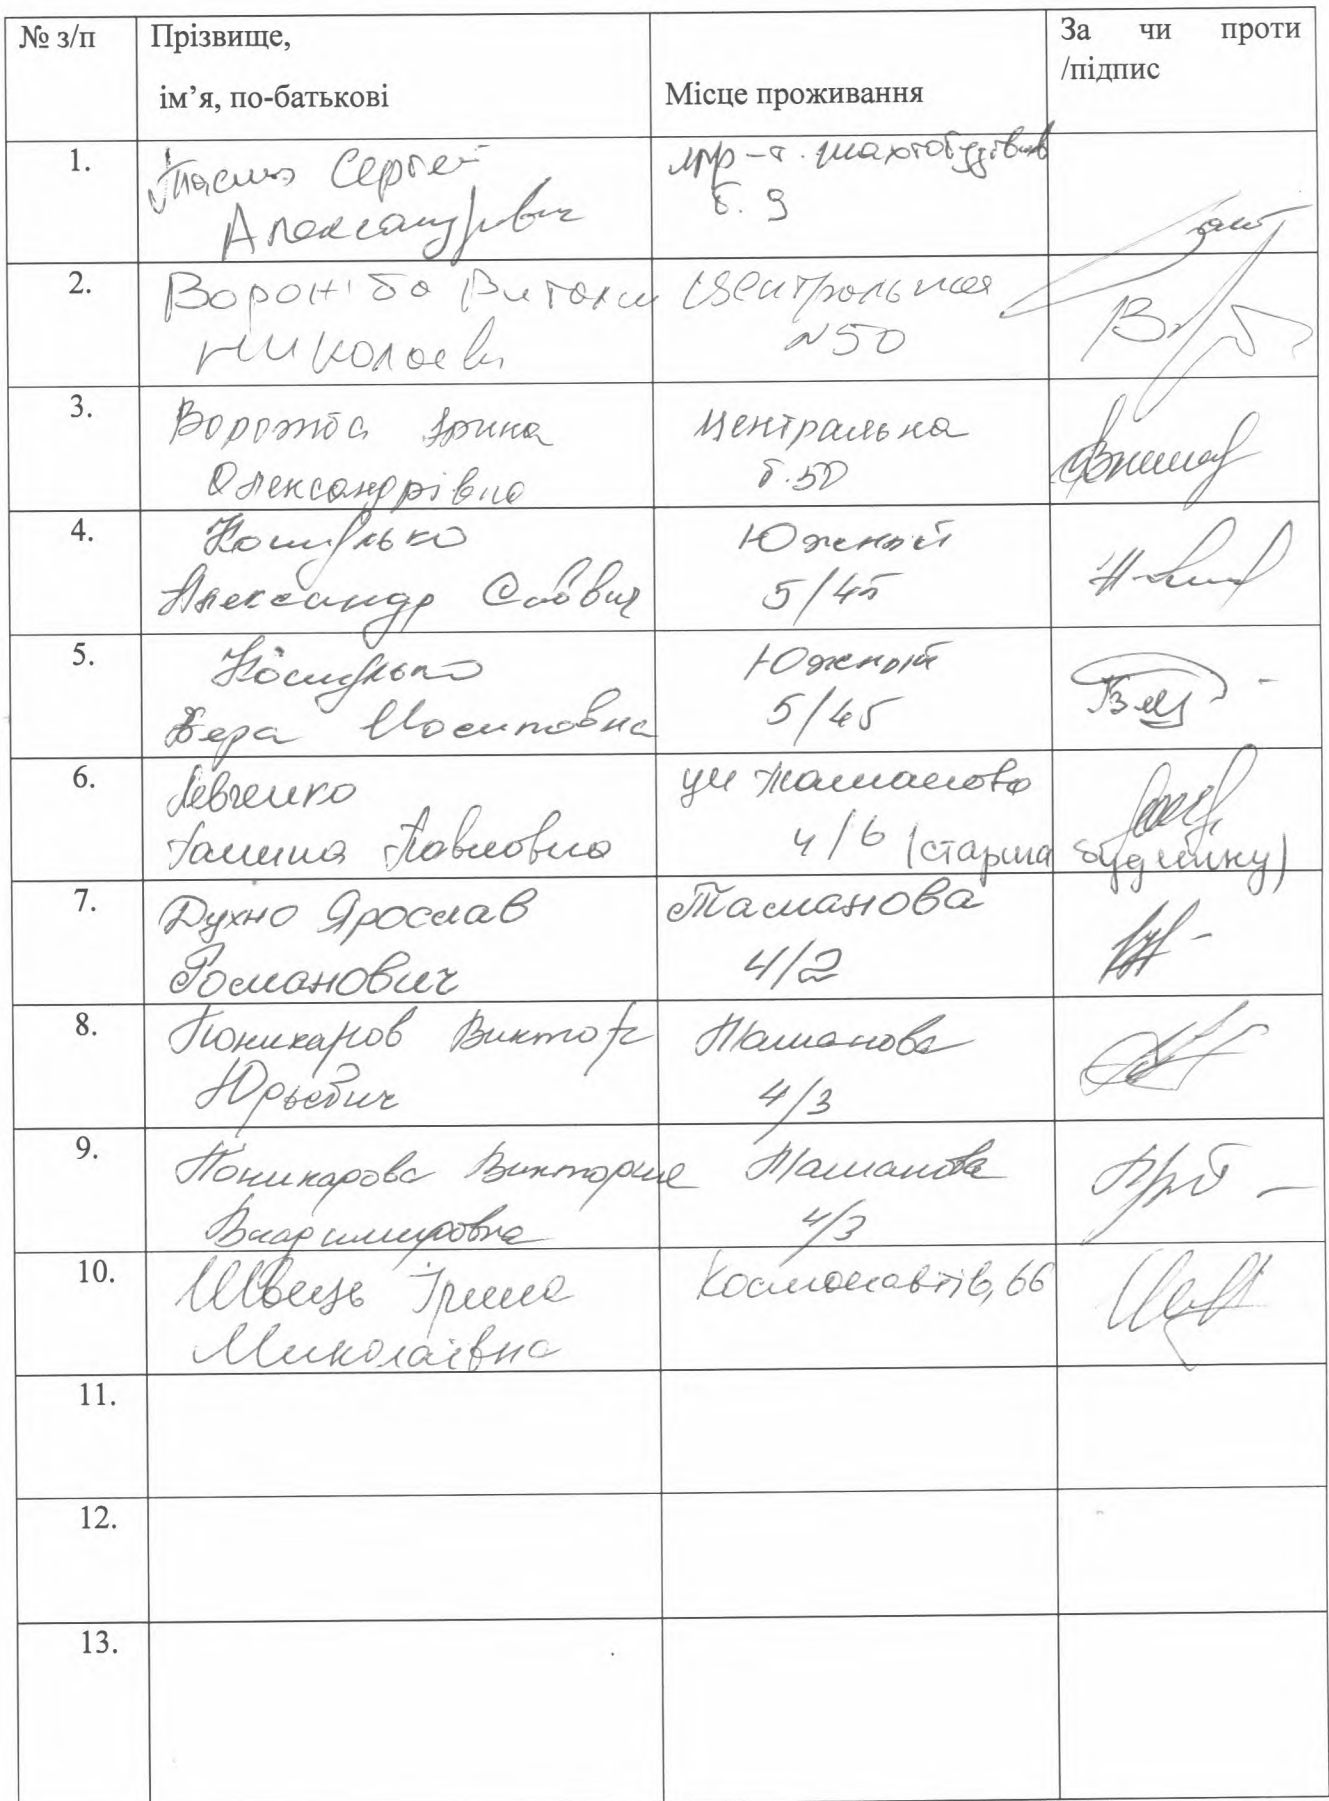 № з/п
Прізвище,
ім’я, по-батькові
Місце проживання
За чи проти
/підпис
1.
Сергей
Александрович
б. 9
2.
Николаевич
Центральная
№50
3.
Ворожба Ірина
Олександрівна
Центральна
б.50
4.
Александр
Южный
5/45
5.
Вера Иосиповна
Южный
5/45
6.
Левченко
Галина Павловна
4/6 (старша будинку)
7.
Духно Ярослав
Романович
Ташанова
4/2
8.
Поникаров Виктор
Юрьевич
Ташанова
4/3
9.
Поникарова Виктория
Владимировна
Ташанова
4/3
10.
Швець Ірина
Миколаївна
Космонавтів, 66
11.
12.
13.